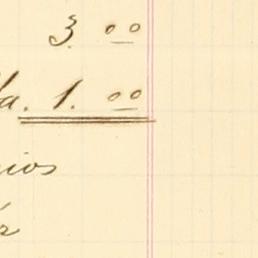 3. 00
la. 1. 00
nios